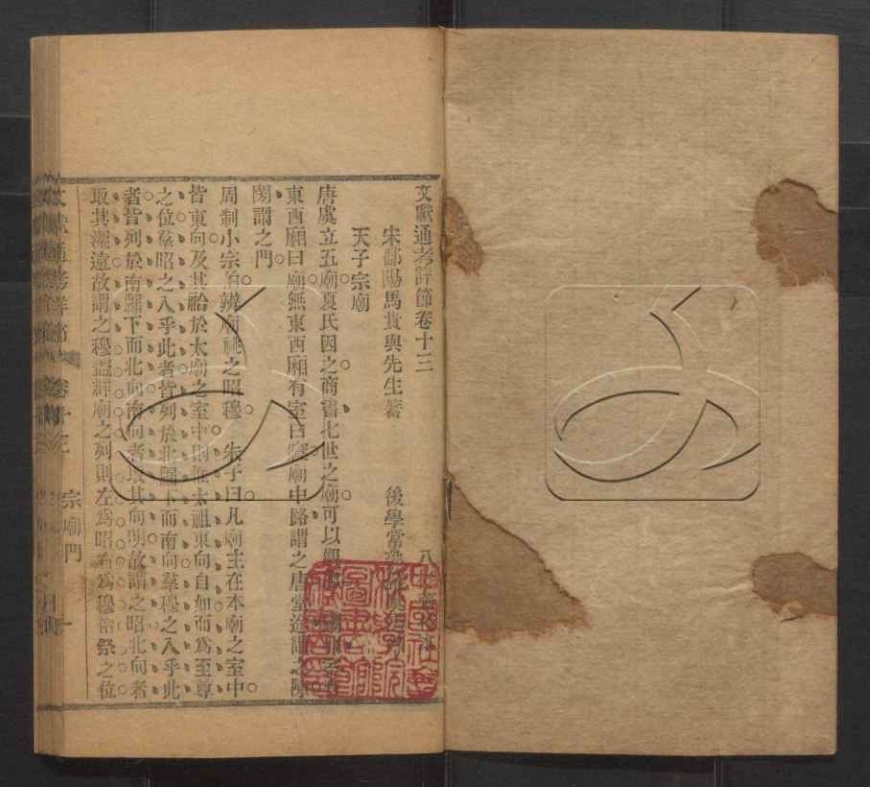 文獻通考詳節卷十三
宋鄱陽馬貴與先生著 後學
天子宗廟
唐虞立五廟夏氏因之商書七世之廟可以觀
東西廂曰廟無東西廂有室曰寢廟中路謂之唐堂途謂之陳
閎謂之門
周制小宗伯辨廟祧之昭穆 朱子曰凡廟主在本廟之室中
皆東向及其祫於太廟之室中則惟太祖東向自如而為至尊
之位羣昭之入乎此者皆列於北牖下而南向羣穆之入乎此
者皆列於南牖下而北向南向者取其向明故謂之昭北向者
取其深遠故謂之穆蓋群廟之列則左為昭右為穆祫祭之位
宗廟門 一